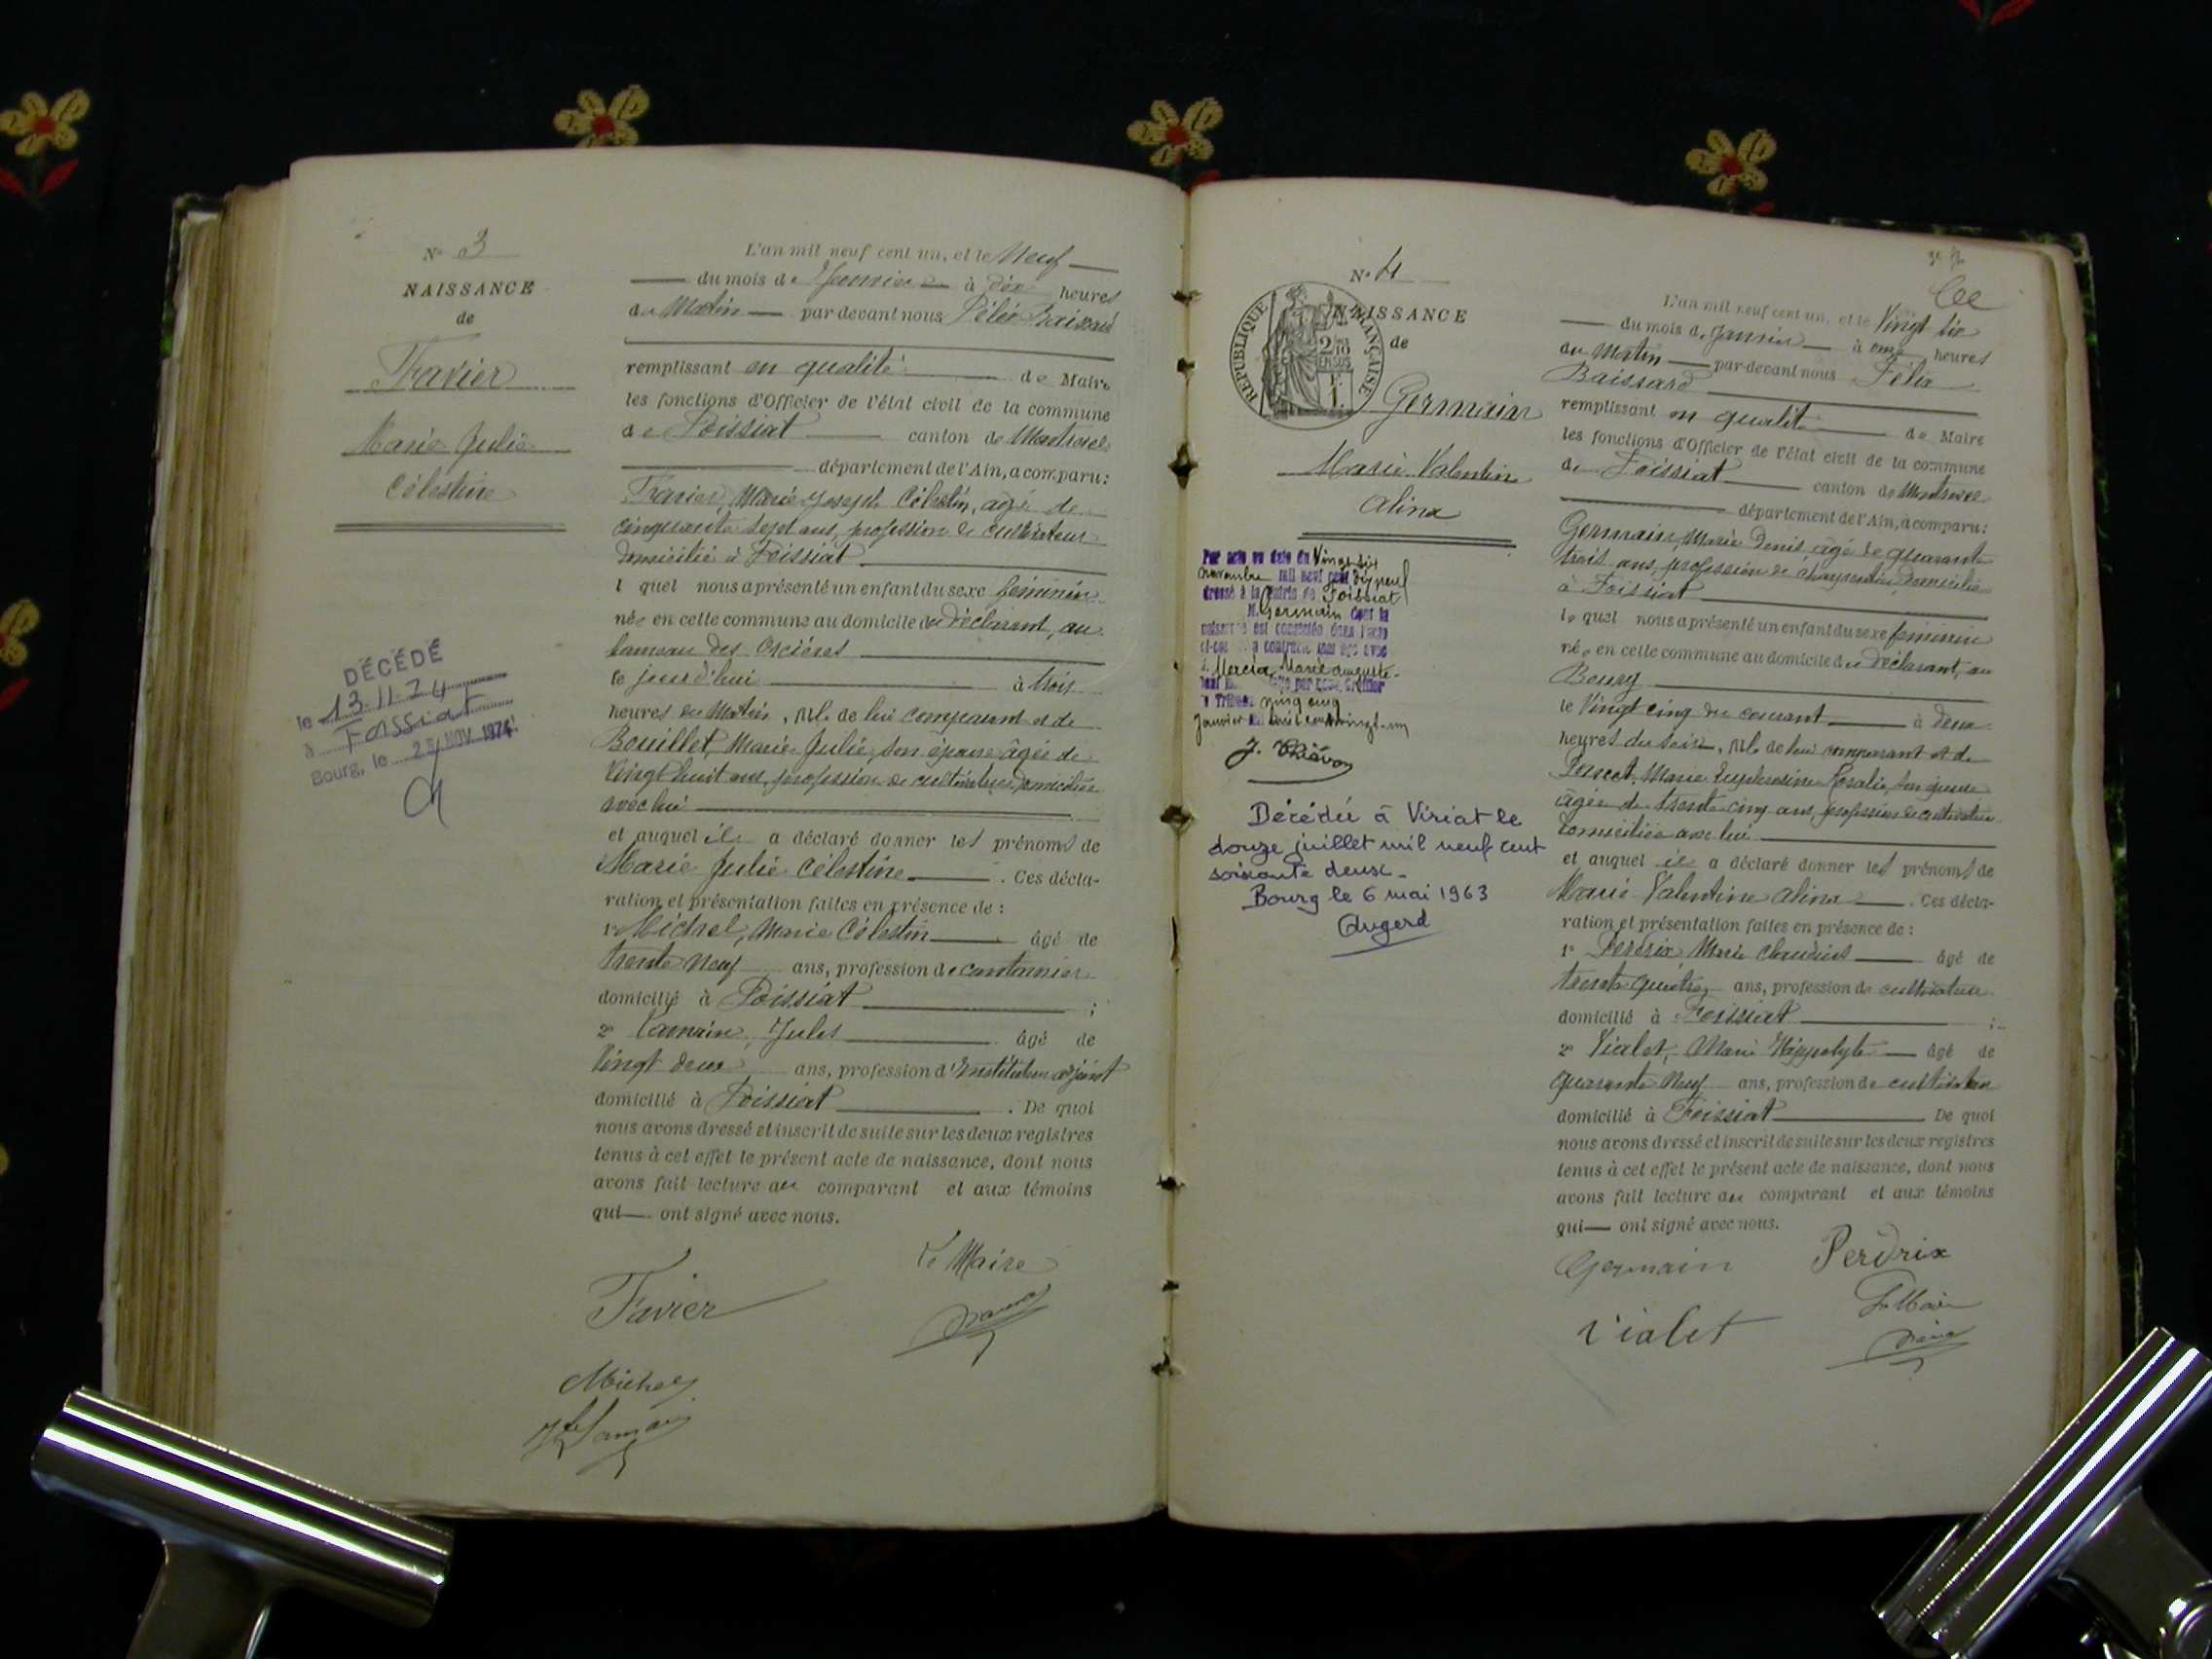 N° 3
NAISSANCE
de
Favier
Marie Julie
Célestine
DÉCÉDÉ
le 13.11.74
à Foissiat
Bourg, le 25 NOV. 1974
L'an mil neuf cent un, et le Neuf
du mois de Janvier à dix heures
du Matin par devant nous Félix Baissard
remplissant en qualité de Maire
les fonctions d'Officier de l'état civil de la commune
de Foissiat canton de Montrevel
département de l'Ain, a comparu :
Favier, Marie Joseph Célestin, âgé de
cinquante sept ans, profession de cultivateur
domicilié à Foissiat
l quel nous a présenté un enfant du sexe féminin
née en cette commune au domicile du déclarant, au
hameau des
ce jourd'hui à trois
heures du Matin, fille de lui comparant et de
Bouillet, Marie Julie, son épouse âgée de
Vingt huit ans, profession de cultivatrice domiciliée
avec lui
et auquel il a déclaré donner les prénoms de
Marie Julie Célestine. Ces décla-
ration et présentation faites en présence de :
1° Michel, Marie Célestin âgé de
trente Neuf ans, profession de cantonnier
domicilié à Foissiat ;
2° Jules âgé de
Vingt deux ans, profession d'Instituteur adjoint
domicilié à Foissiat. De quoi
nous avons dressé et inscrit de suite sur les deux registres
tenus à cet effet le présent acte de naissance, dont nous
avons fait lecture au comparant et aux témoins
qui ont signé avec nous.
Favier Le Maire
Michel
N° 4
NAISSANCE
de
RÉPUBLIQUE FRANÇAISE
Germain
Marie Valentine
Alina
Par acte en date du Vingt six
novembre mil neuf cent dix neuf
dressé à la Mairie de Foissiat
M. Germain dont la
naissance est constatée dans l'acte
ci-contre a contracté mariage avec
Mercier, Marie Auguste
Décédée à Viriat le
douze juillet mil neuf cent
soixante deux.
Bourg le 6 mai 1963
Augerd
L'an mil neuf cent un, et le Vingt six
du mois de Janvier à onze heures
du Matin par-devant nous Félix
Baissard
remplissant en qualité de Maire
les fonctions d'Officier de l'état civil de la commune
de Foissiat canton de Montrevel
département de l'Ain, a comparu :
Germain, Marie Denis, âgé de quarante
trois ans, profession de charpentier domicilié
à Foissiat
le quel nous a présenté un enfant du sexe féminin
née en cette commune au domicile du déclarant, au
Bourg
le Vingt cinq du courant à deux
heures du soir, fille de lui comparant et de
Marie Euphrosine Rosalie, son épouse
âgée de trente cinq ans, profession de cultivatrice
domiciliée avec lui
et auquel il a déclaré donner les prénoms de
Marie Valentine Alina. Ces décla-
ration et présentation faites en présence de :
1° Perdrix Marie Claudius âgé de
trente quatre ans, profession de cultivateur
domicilié à Foissiat ;
2° Vialet, Marie Hippolyte âgé de
quarante Neuf ans, profession de cultivateur
domicilié à Foissiat De quoi
nous avons dressé et inscrit de suite sur les deux registres
tenus à cet effet le présent acte de naissance, dont nous
avons fait lecture au comparant et aux témoins
qui ont signé avec nous.
Germain Perdrix
Vialet Le Maire